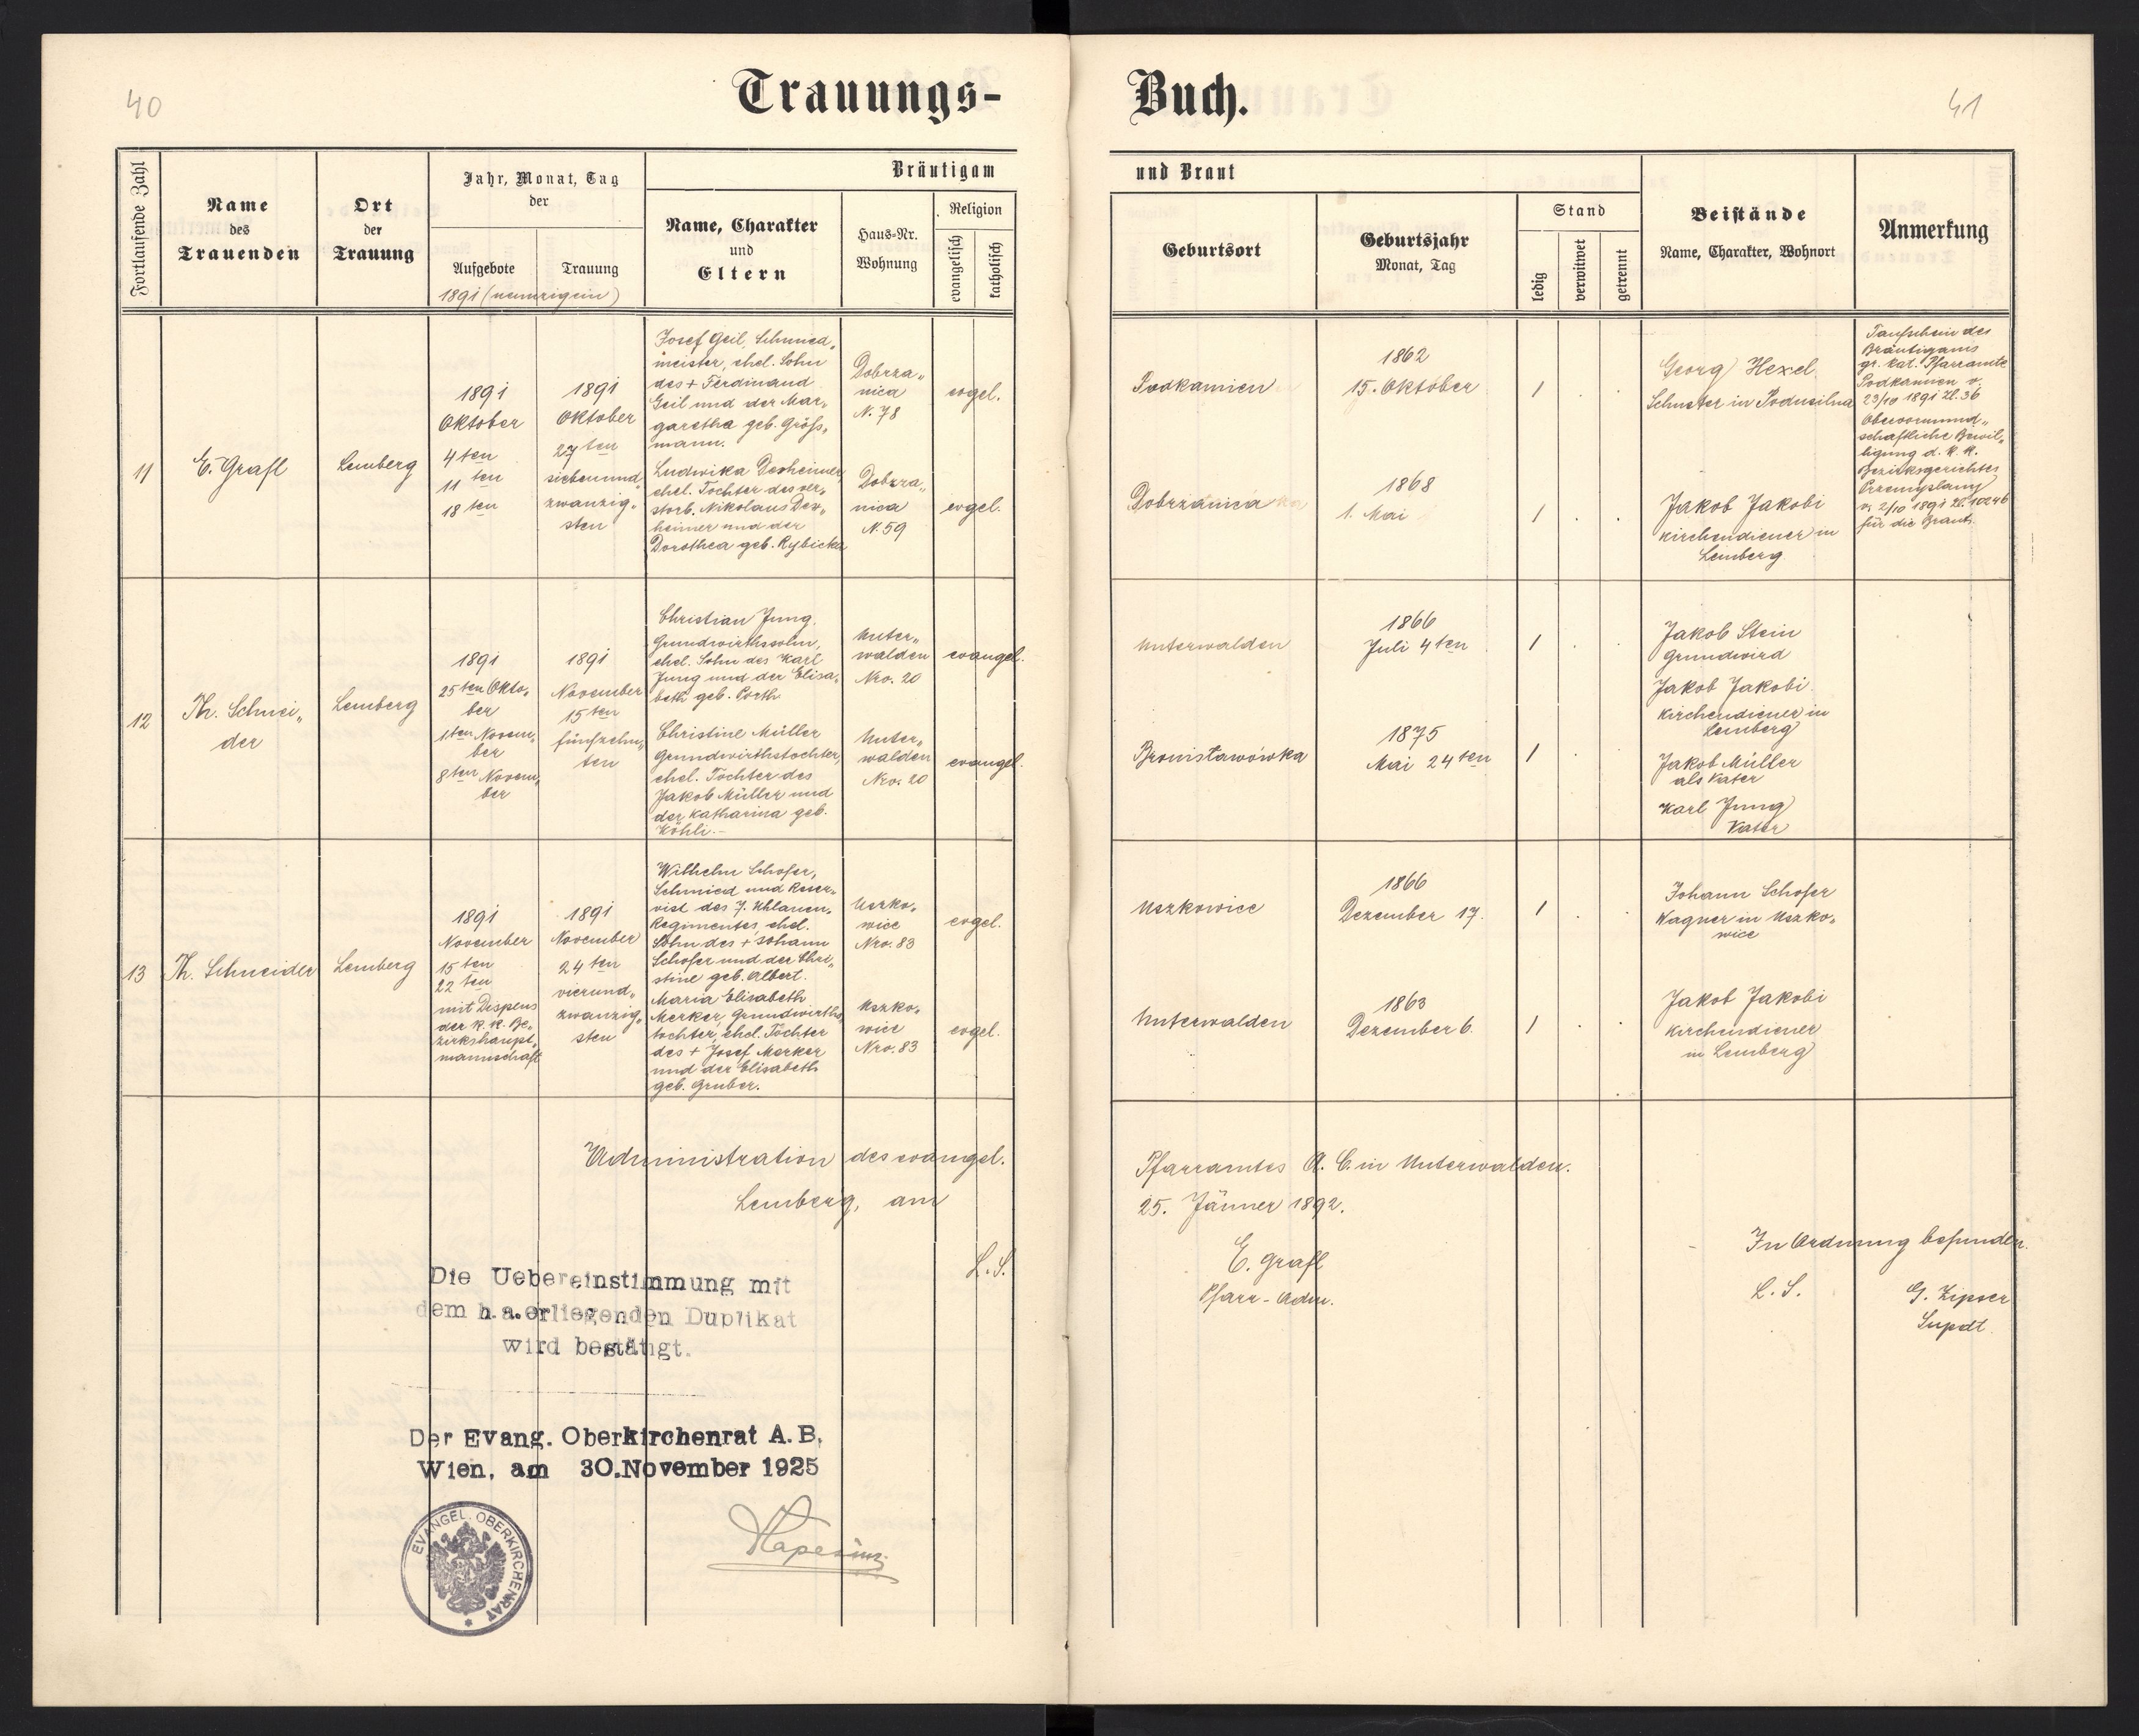 40
Trauungs-
Buch.
41
Fortlaufende Zahl
Name
des
Trauenden
Ort
der
Trauung
Jahr, Monat, Tag
der
Aufgebote
Trauung
1891 (neunzigein)
Bräutigam
Name, Charakter
und
Eltern
Haus-Nr.
Wohnung
Religion
evangelisch
katholisch
und Braut
Geburtsort
Geburtsjahr
Monat, Tag
Stand
ledig
verwitwet
getrennt
Beistände
Name, Charakter, Wohnort
Anmerkung
11
E. Grafl
Lemberg
1891
Oktober
4ten
11ten
18ten
1891
Oktober
27ten
siebenund„
zwanzig„
sten
Josef Geil, Schmied„
meister, ehel. Sohn
des + Ferdinand
Geil und der Mar„
garetha geb. Gröss„
mann.
Dobrza„
nica
N. 78
evgel.
Podkamien
1862
15. Oktober
1
Georg Hexel
Schuster in Podusilna
Ludwika Desheimer
ehel. Tochter des ver„
storb. Nikolaus Des„
heimer und der
Dorothea geb. Rybicka
Dobrza„
nica
N. 59
evgel.
Dobrzanica
1868
1. Mai
1
Jakob Jakobi
Kirchendiener in
Lemberg
Taufschein des
Bräutigams
gr. kat. Pfarramte
Podkamien v.
23/10 1891 Zl. 36
Obervormund„
schaftliche Bewil„
ligung d. k. k.
Bezirksgerichtes
Przemyslany
v. 2/10 1891 Zl. 10246
für die Braut.
12
Th. Schnei„
der
Lemberg
1891
25ten Okto„
ber
1ten Novem„
ber
8ten Novem„
ber
1891
November
15ten
fünfzehn„
ten
Christian Jung,
Grundwirthssohn,
ehel. Sohn des Karl
Jung und der Elisa„
beth geb. Porth
Unter„
walden
Nro. 20
evangel.
Unterwalden
1866
Juli 4ten
1
Jakob Stein
Grundwird
Jakob Jakobi
Kirchendiener in
Lemberg
Christine Müller
Grundwirthstochter,
ehel. Tochter des
Jakob Müller und
der Katharina geb.
Köhli.-
Unter„
walden
Nro. 20
evangel.
Bronisławówka
1875
Mai 24ten
1
Jakob Müller
als Vater
Karl Jung
Vater
13
Th. Schneider
Lemberg
1891
November
15ten
22ten
mit Dispens
der k. k. Be„
zirkshaupt„
mannschaft
1891
November
24ten
vierund„
zwanzig„
sten
Wilhelm Schofer,
Schmied und Reser„
vist des 7. Uhlanen„
Regimentes, ehel.
Sohn des + Johann
Schofer und der Chri„
stine geb. Albert.
Uszko„
wice
Nro. 83
evgel.
Uszkowice
1866
Dezember 17.
1
Johann Schofer
Wagner in Uszko„
wice
Maria Elisabeth
Merker, Grundwirths
tochter, ehel. Tochter
des + Josef Merker
und der Elisabeth
geb. Gruber.
Uszko„
wice
Nro. 83
evgel.
Unterwalden
1863
Dezember 6.
1
Jakob Jakobi
Kirchendiener
in Lemberg
Administration des evangel. Pfarramtes A. C. in Unterwalden.
Lemberg, am 25. Jänner 1892.
L. S.
E. Grafl
Pfarr-Adm.
In Ordnung befunden.
L. S.
G. Zipser
Supdt.
Die Uebereinstimmung mit
dem h.a.erliegenden Duplikat
wird bestätigt.
Der Evang. Oberkirchenrat A.B.
Wien, am 30.November 1925
EVANGEL. OBERKIRCHENRAT